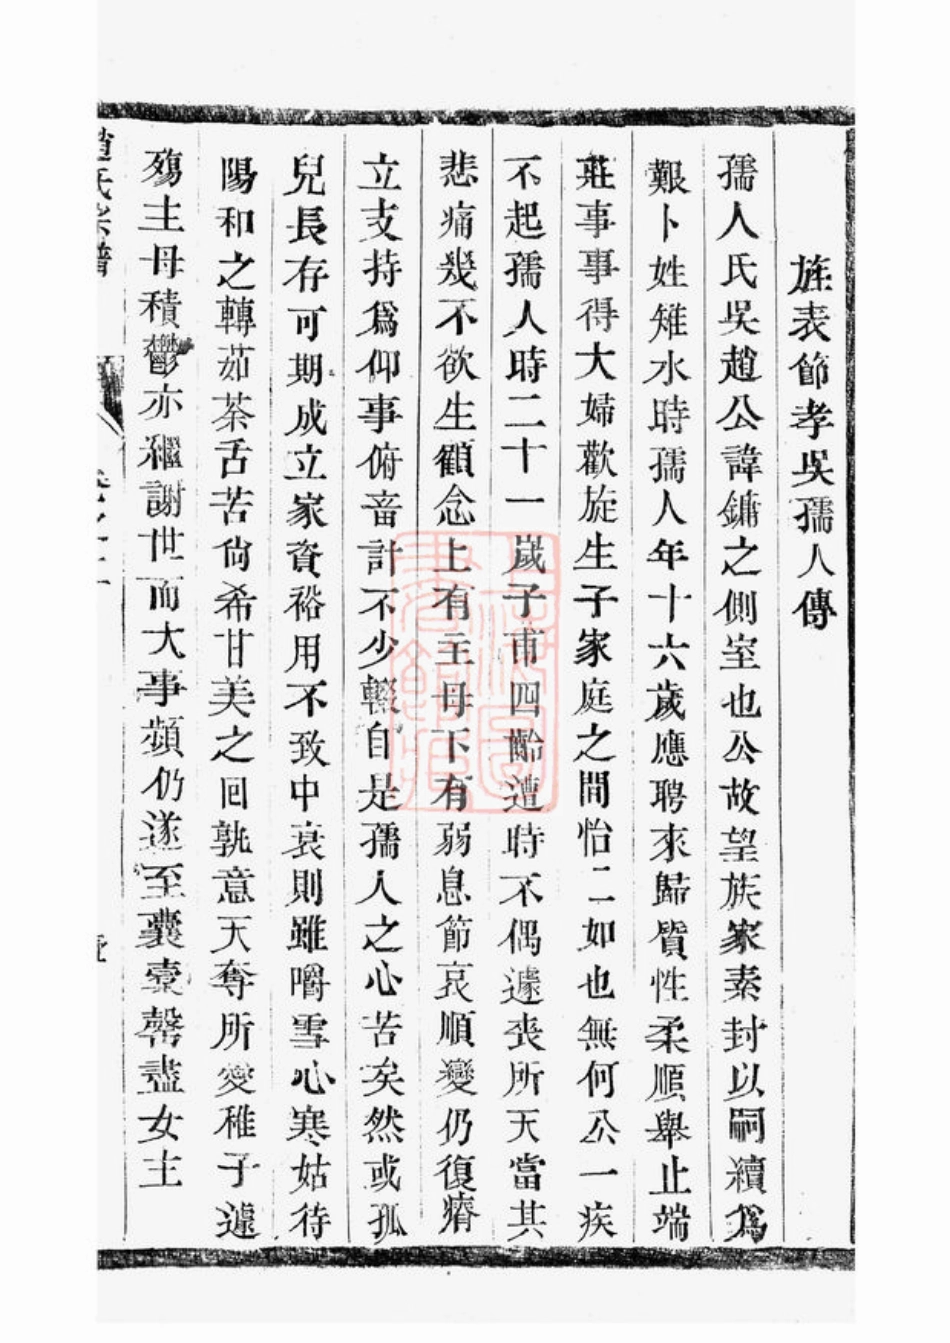 旌表節孝吳孺人傳
孺人氏吳趙公諱鏞之側室也公故望族家素封以嗣續爲
艱卜姓雉水時孺人年十六歲應聘來歸質性柔順舉止端
莊事事得大婦歡旋生子家庭之間怡二如也無何公一疾
不起孺人時二十一歲子甫四齡遭時不偶遽喪所天當其
悲痛幾不欲生顧念上有主母下有弱息節哀順變仍復瘠
立支持爲仰事俯畜計不少輟自是孺人之心苦矣然或孤
兒長存可期成立家資裕用不致中衰則雖嚼雪心寒姑待
陽和之轉茹荼舌苦尙希甘美之回孰意天奪所愛稚子遽
殤主母積鬱亦繼謝世而大事頻仍遂至囊橐罄盡女主
趙氏宗譜
卷之二